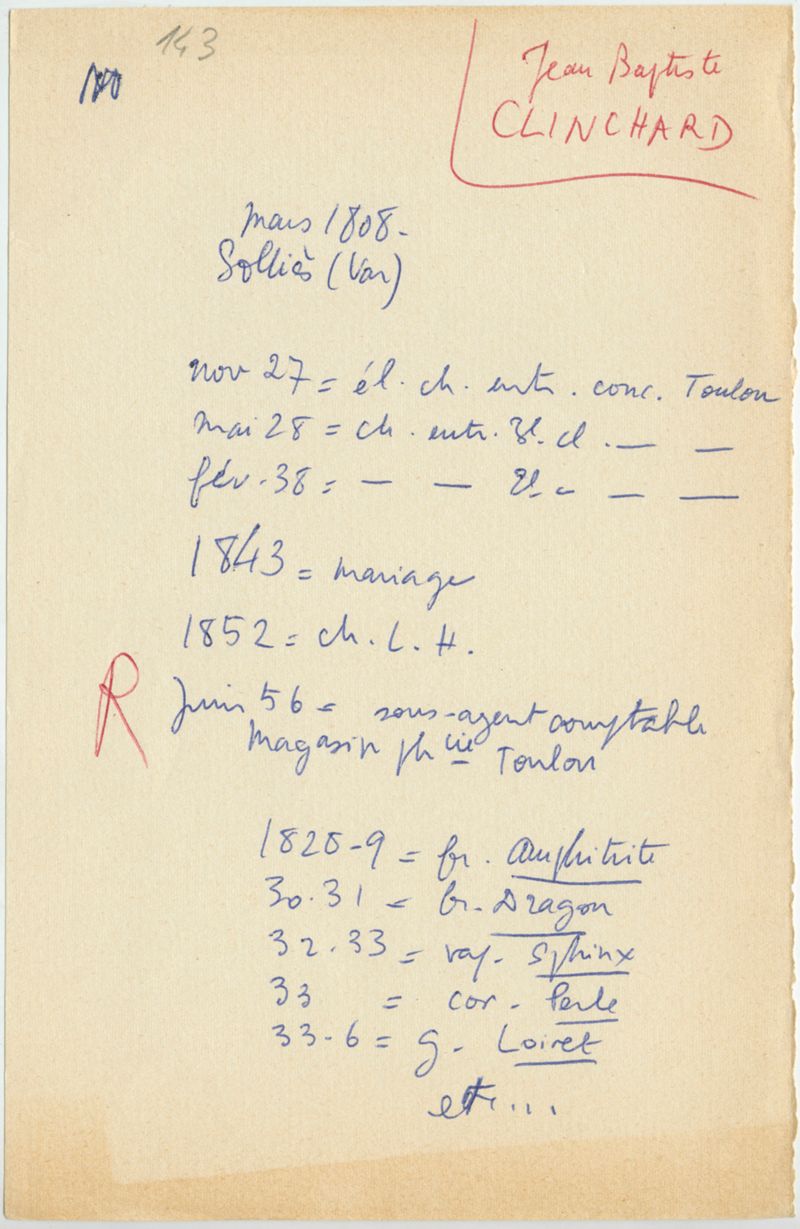 143
Jean Baptiste
CLINCHARD
mars 1808-
Solliès (Var)
nov 27 = él. ch. entr. conc. Toulon
mai 28 = ch. entr. 3e. cl. — —
fév. 38 = — — 2e. " — —
1843 = mariage
1852 = ch. L. H.
R
Juin 56 = sous-agent comptable
Magasin phcie Toulon
1828-9 = fr. Amphitrite
30.31 = br. Dragon
32.33 = vap. Sphinx
33 = cor. Perle
33-6 = g. Loiret
etc...